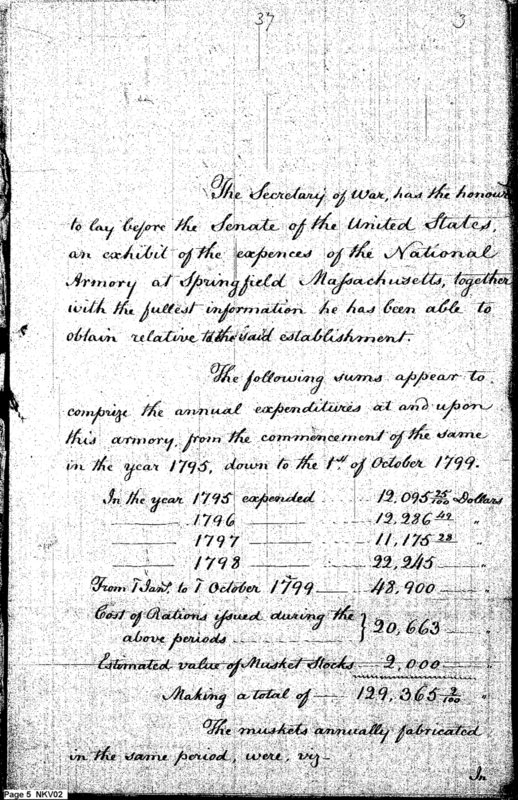 37
3
The Secretary of War, has the honour
to lay before the Senate of the United States,
an exhibit of the expences of the National
Armory at Springfield Massachusetts, together
with the fullest information he has been able to
obtain relative to the said establishment.
The following sums appear to
comprize the annual expenditures at and upon
this armory, from the commencement of the same
in the year 1795, down to the 1st. of October 1799.
In the year 1795 expended 12,095 25/100 Dollars
——— 1796 ——— 12,286 49 "
——— 1797 ——— 11,175 28 "
——— 1798 ——— 22,245 — "
From 1 Jany. to 1 October 1799 — 48,900 — "
Cost of Rations issued during the
above periods } 20,663 — "
Estimated value of Musket Stocks 2,000 — "
Making a total of — 129,365 2/100 "
The muskets annually fabricated
in the same period, were, viz-
In
Page 5 NKV02